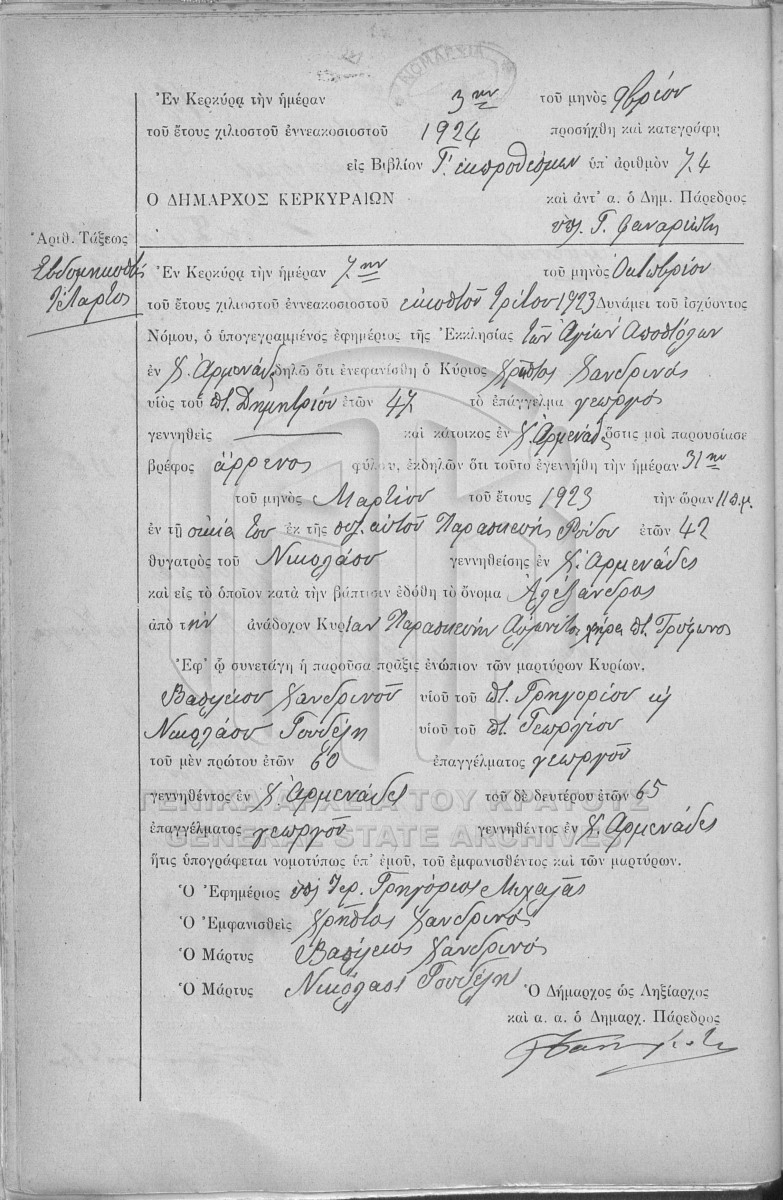 ΝΟΜΑΡΧΙΑ
Ἐν Κερκύρᾳ τὴν ἡμέραν 3ην τοῦ μηνὸς Φβρίου
τοῦ ἔτους χιλιοστοῦ ἐννεακοσιοστοῦ 1924 προσήχθη καὶ κατεγράφη
εἰς Βιβλίον Γ' ἐκπροθέσμων ὑπ' ἀριθμὸν 74
Ο ΔΗΜΑΡΧΟΣ ΚΕΡΚΥΡΑΙΩΝ καὶ ἀντ' α. ὁ Δημ. Πάρεδρος
ὑπ. Γ. Φαναριώτης
Ἀριθ. Τάξεως
Ἑβδομηκοστὸς
τέταρτος
Ἐν Κερκύρᾳ τὴν ἡμέραν 7ην τοῦ μηνὸς Ὀκτωβρίου
τοῦ ἔτους χιλιοστοῦ ἐννεακοσιοστοῦ εἰκοστοῦ τρίτου 1923 Δυνάμει τοῦ ἰσχύοντος
Νόμου, ὁ ὑπογεγραμμένος ἐφημέριος τῆς Ἐκκλησίας τῶν Ἁγίων Ἀποστόλων
ἐν Χ. Ἀρμενάδες δηλῶ ὅτι ἐνεφανίσθη ὁ Κύριος Χρῆστος Χανδρινός
υἱὸς τοῦ ποτ. Δημητρίου ἐτῶν 47 τὸ ἐπάγγελμα γεωργός
γεννηθεὶς καὶ κάτοικος ἐν Χ. Ἀρμενάδες ὅστις μοὶ παρουσίασε
βρέφος ἄρρενος φύλου, ἐκδηλῶν ὅτι τοῦτο ἐγεννήθη τὴν ἡμέραν 31ην
τοῦ μηνὸς Μαρτίου τοῦ ἔτους 1923 τὴν ὥραν 11 π.μ.
ἐν τῇ οἰκίᾳ του ἐκ τῆς συζ. αὐτοῦ Παρασκευῆς Ρούσου ἐτῶν 42
θυγατρὸς τοῦ Νικολάου γεννηθείσης ἐν Χ. Ἀρμενάδες
καὶ εἰς τὸ ὁποῖον κατὰ τὴν βάπτισιν ἐδόθη τὸ ὄνομα Ἀλέξανδρος
ἀπὸ τὴν ἀνάδοχον Κυρίαν Παρασκευὴν χήρα ποτ. Τρύφωνος
Ἐφ' ᾧ συνετάγη ἡ παροῦσα πρᾶξις ἐνώπιον τῶν μαρτύρων Κυρίων.
Βασιλείου Χανδρινοῦ υἱοῦ τοῦ ποτ. Γρηγορίου κ'
Νικολάου Γουδέλη υἱοῦ τοῦ ποτ. Γεωργίου
τοῦ μὲν πρώτου ἐτῶν 60 ἐπαγγέλματος γεωργοῦ
γεννηθέντος ἐν Χ. Ἀρμενάδες τοῦ δὲ δευτέρου ἐτῶν 65
ΓΕΝΙΚΑ ΑΡΧΕΙΑ ΤΟΥ ΚΡΑΤΟΥΣ
ἐπαγγέλματος γεωργοῦ γεννηθέντος ἐν Χ. Ἀρμενάδες
GENERAL STATE ARCHIVES
ἥτις ὑπογράφεται νομοτύπως ὑπ' ἐμοῦ, τοῦ ἐμφανισθέντος καὶ τῶν μαρτύρων.
Ὁ Ἐφημέριος ὑπ. Ἱερ. Γρηγόριος Μιχαλᾶς
Ὁ Ἐμφανισθεὶς Χρῆστος Χανδρινός
Ὁ Μάρτυς Βασίλειος Χανδρινός
Ὁ Μάρτυς Νικόλαος Γουδέλης
Ὁ Δήμαρχος ὡς Ληξίαρχος
καὶ α. α. ὁ Δημαρχ. Πάρεδρος